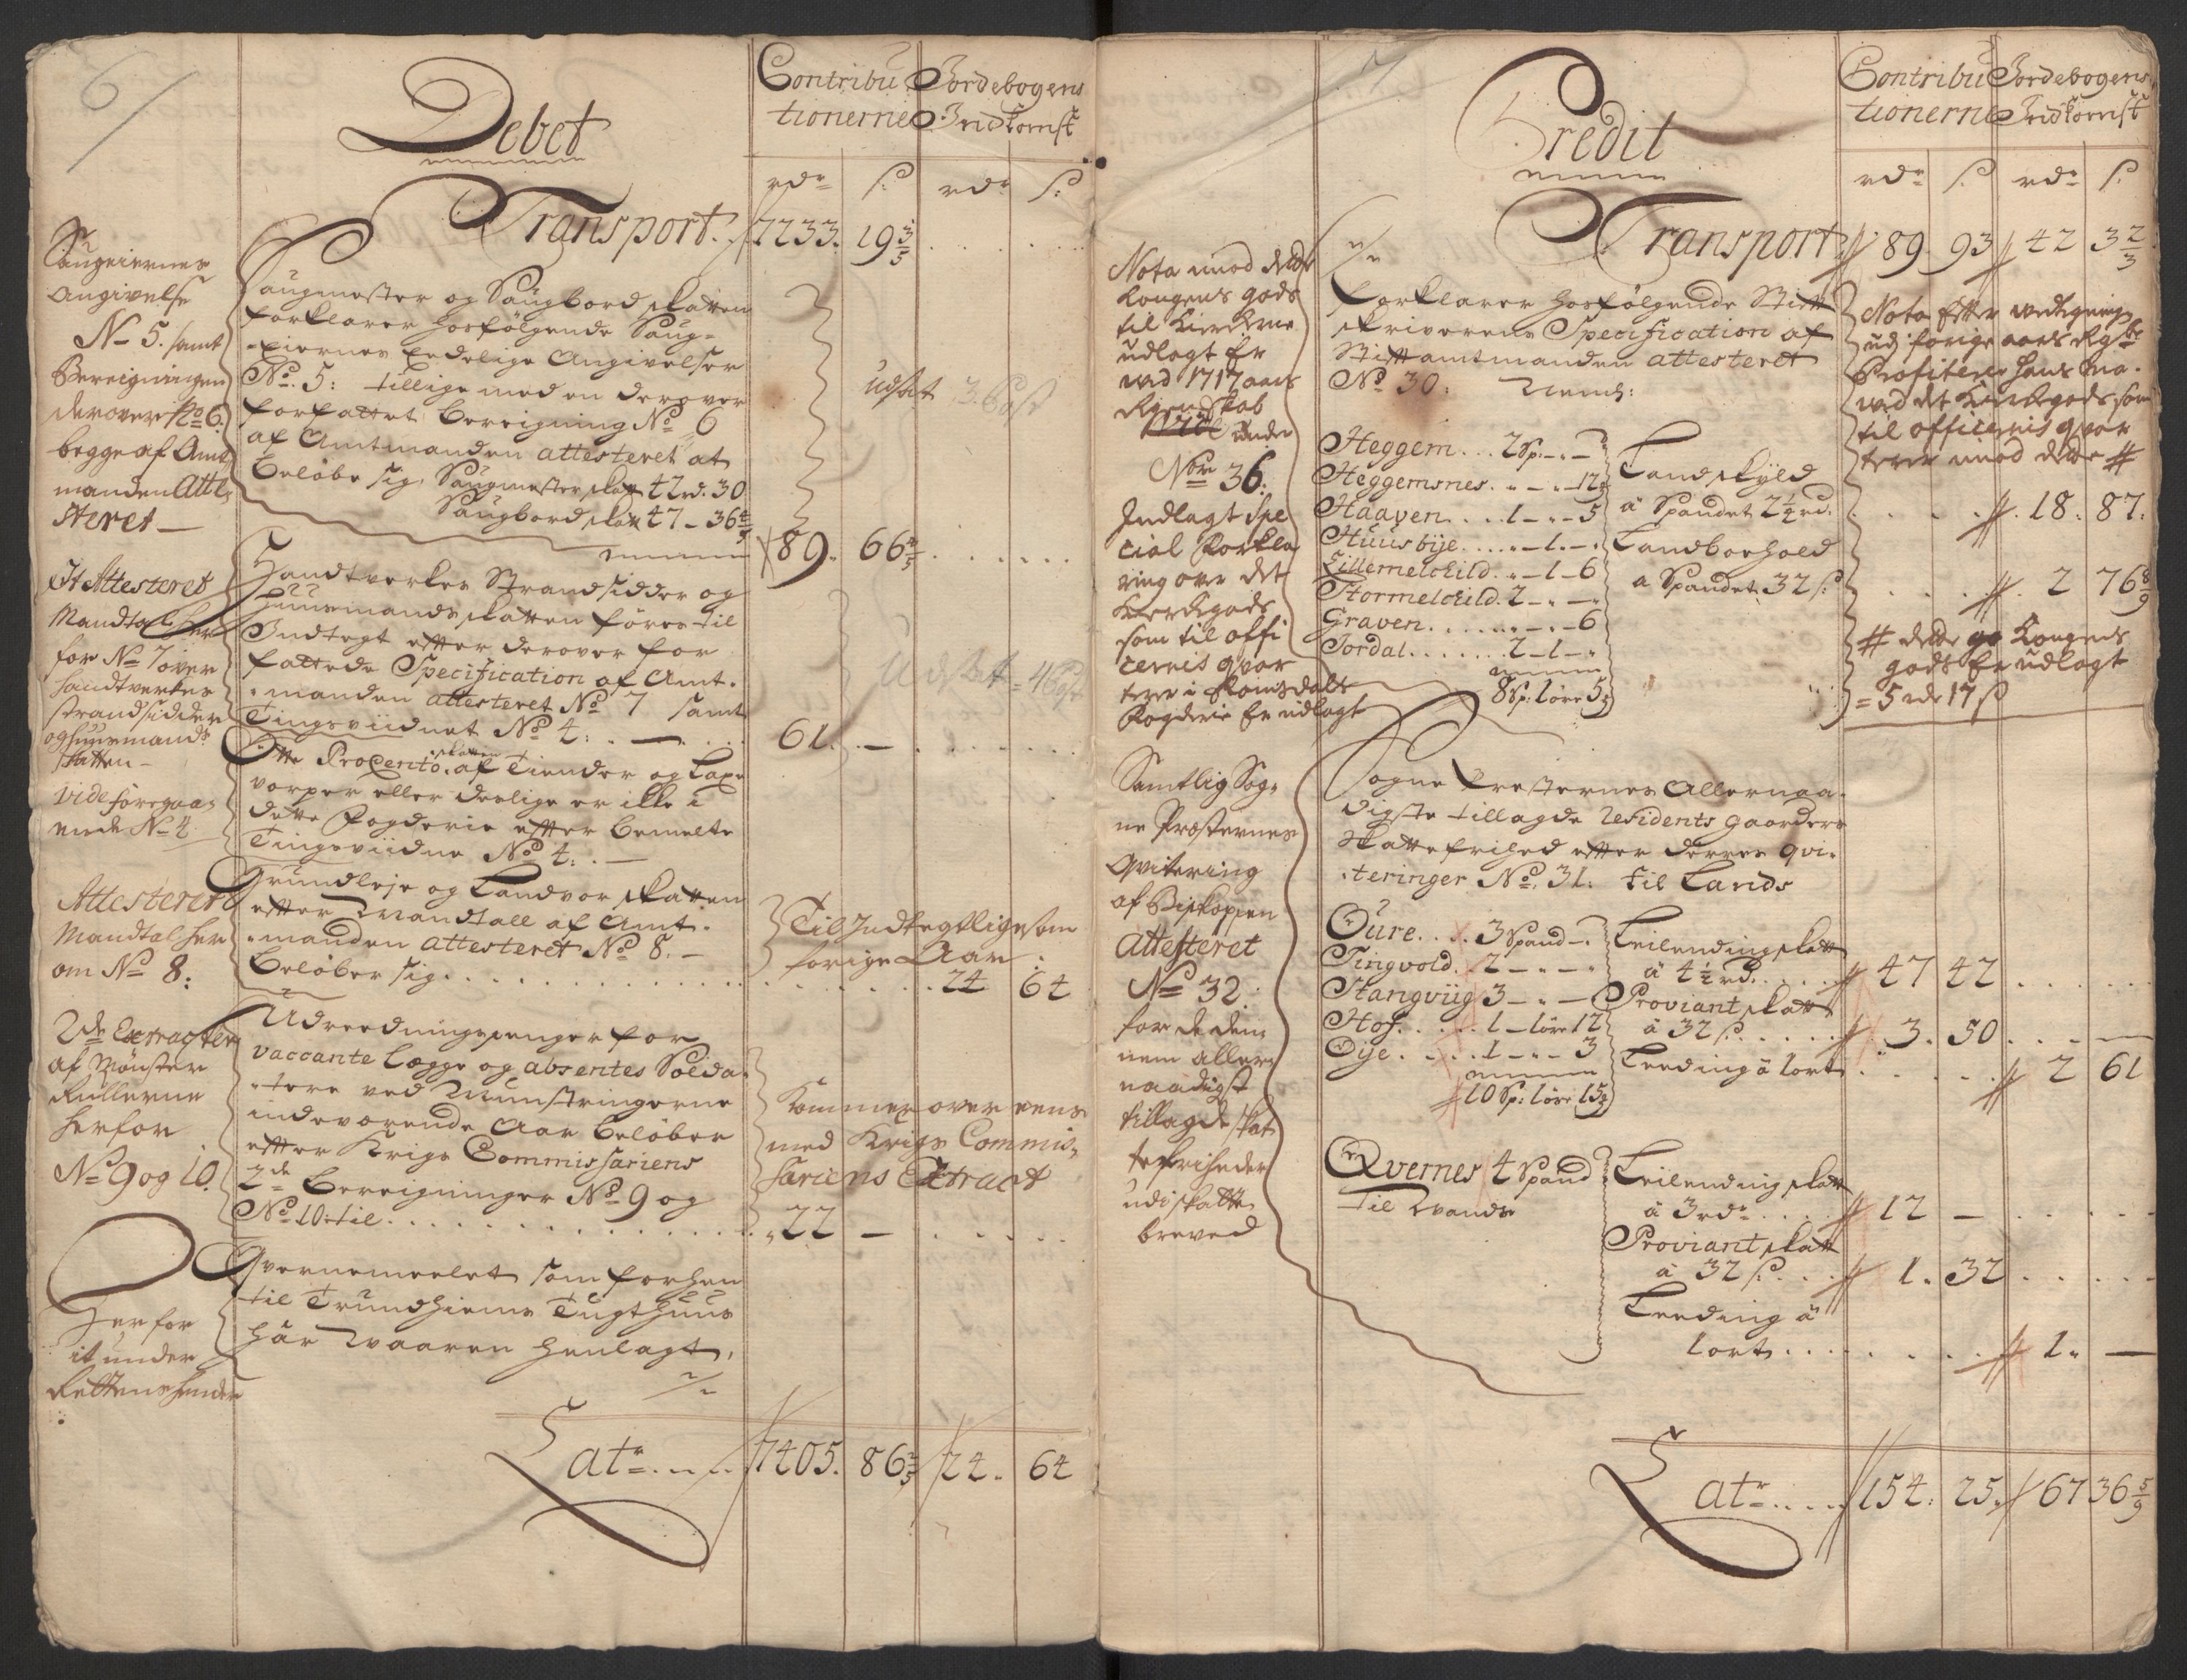 6/
Debet
Contribu
tionerne
Jordebogens
Indkomst
rdr ß rdr ß
Transport. 7233. 19 3/5
Saugeiernes
Angivelse
No 5. samt
Bereigningen
derover No 6.
begge af Amt
manden Atte
steret
Saugmester og Saugbord skatten
forklarer hosfølgende Saug-
Eiernes Eedelige Angivelser
No. 5: tillige med en derover
forfattet bereigning No 6
af Amtmanden attesteret at
beløbe sig, Saugmester skatt 42 rd. 30
Saugbord skatt 47 - 36 2/5
89. 66 2/5
Udsat 3 Post
It Attesteret
Mandtal her
for No 7 over
Handtverkes
strandsidder
og huusmands
skatten
Handtverker Strandsidder og
Huusmands skatten føres til
Indtegt efter derover for
fattede Specification af Amt-
manden attesteret No 7 samt
Tingsviidnet No 4: 61. —
Udsat 4 Post
vide foregaa-
ende No 4
Otte Procento skatten af Tiender og Laxe
varper eller deslige er ikke i
dette Fogderie efter bemelte
Tingsviidne No 4:
Attesteret
Mandtal her
om No 8:
Grundleje og Landvor skatten
efter Mandtall af Amt-
manden attesteret No 8.
beløber sig 24 64
Til Indtegt lige som
forige Aar
2de Extracter
af Mønster
Rullerne
herfor
No 9 og 10.
Udreednings penger for
vaccante Legge og absentes Solda-
tere ved Munstringerne
indeværende Aar beløber
efter Krigs Commissariens
2de bereigninger No 9 og
No 10: til 22 —
Kommer over eens
med Krigs Commis-
sariens Extract
Herfor
it under
Rettens hender
Qvernemeelet som forhen
til Trundhiems Tugthuus
har waaren henlagt,
Latr 7405. 86 2/5 24. 64
7
Credit
Contribu
tionerne
Jordebogens
Indkomst
rdr ß rdr ß
Transport 89. 93 42 3 2/3
Nota imod dette
Kongens gods
til Kirkerne
udlagt Er
ved 1717 aars
Regenskab
under
No 36.
Indlagt Spe
cial Forkla
ring over det
Kirkegods
som til offi
cernis qvar
terer i Romsdals
Fogderie Er udlagt
Forklarer hosfølgende Stift
skriverens Specification af
Stiftamtmanden attesteret
No 30: Neml:
Heggem 2 Sp. - -
Heggemsnes - - 12
Haaven 1 - - 5
Huusbye - 1 -
Lillemelchild - 1 - 6
Stormelchild 2 - -
Graven - - 6
Jordal 2 - 1 -
8 Sp: 1 øre 5
Landskyld
à Spandet 2 1/4 rd.
18. 87.
Landboehold
a Spandet 32 ß
2 76 8/9
Nota Efter vedtegning
ud i forige aars Regsk
Profiterer hans Ma.
ved det Kirkegods som
til officernis qvar
terer imod dette #
# dette og Kongens
gods Er udlagt
= 5 rdr 17 ß
Samtlig Sog-
ne Præsternes
Qvitering
af Biskoppen
Attesteret
No 32.
for de dem
nem aller
naadigst
tillagde skat
tefriheder
udi skatte
breved
Sogne Presternes Allernaa-
digste tillagde Residents gaarders
Skatte frihed efter derres qvi-
teringer No. 31: til Lands
Oure 3 Spand -
Tingvold 2 - - -
Stangviig 3 - -
Hof 1 - 1 øre 12
Øye 1 - - 3
10 Sp: 1 øre 15
Leilending skatt
à 4 1/2 rd. 47 42
Proviant skatt
à 32 ß 3. 50
Leeding à 1 ort 2 61
Qvernes 4 Spand
til Mands
Leilending skatt
à 3 rdr 12 —
Proviant skatt
à 32 ß 1. 32
Leeding à
1 ort 1. —
Latr 154. 25. 67 36 5/9